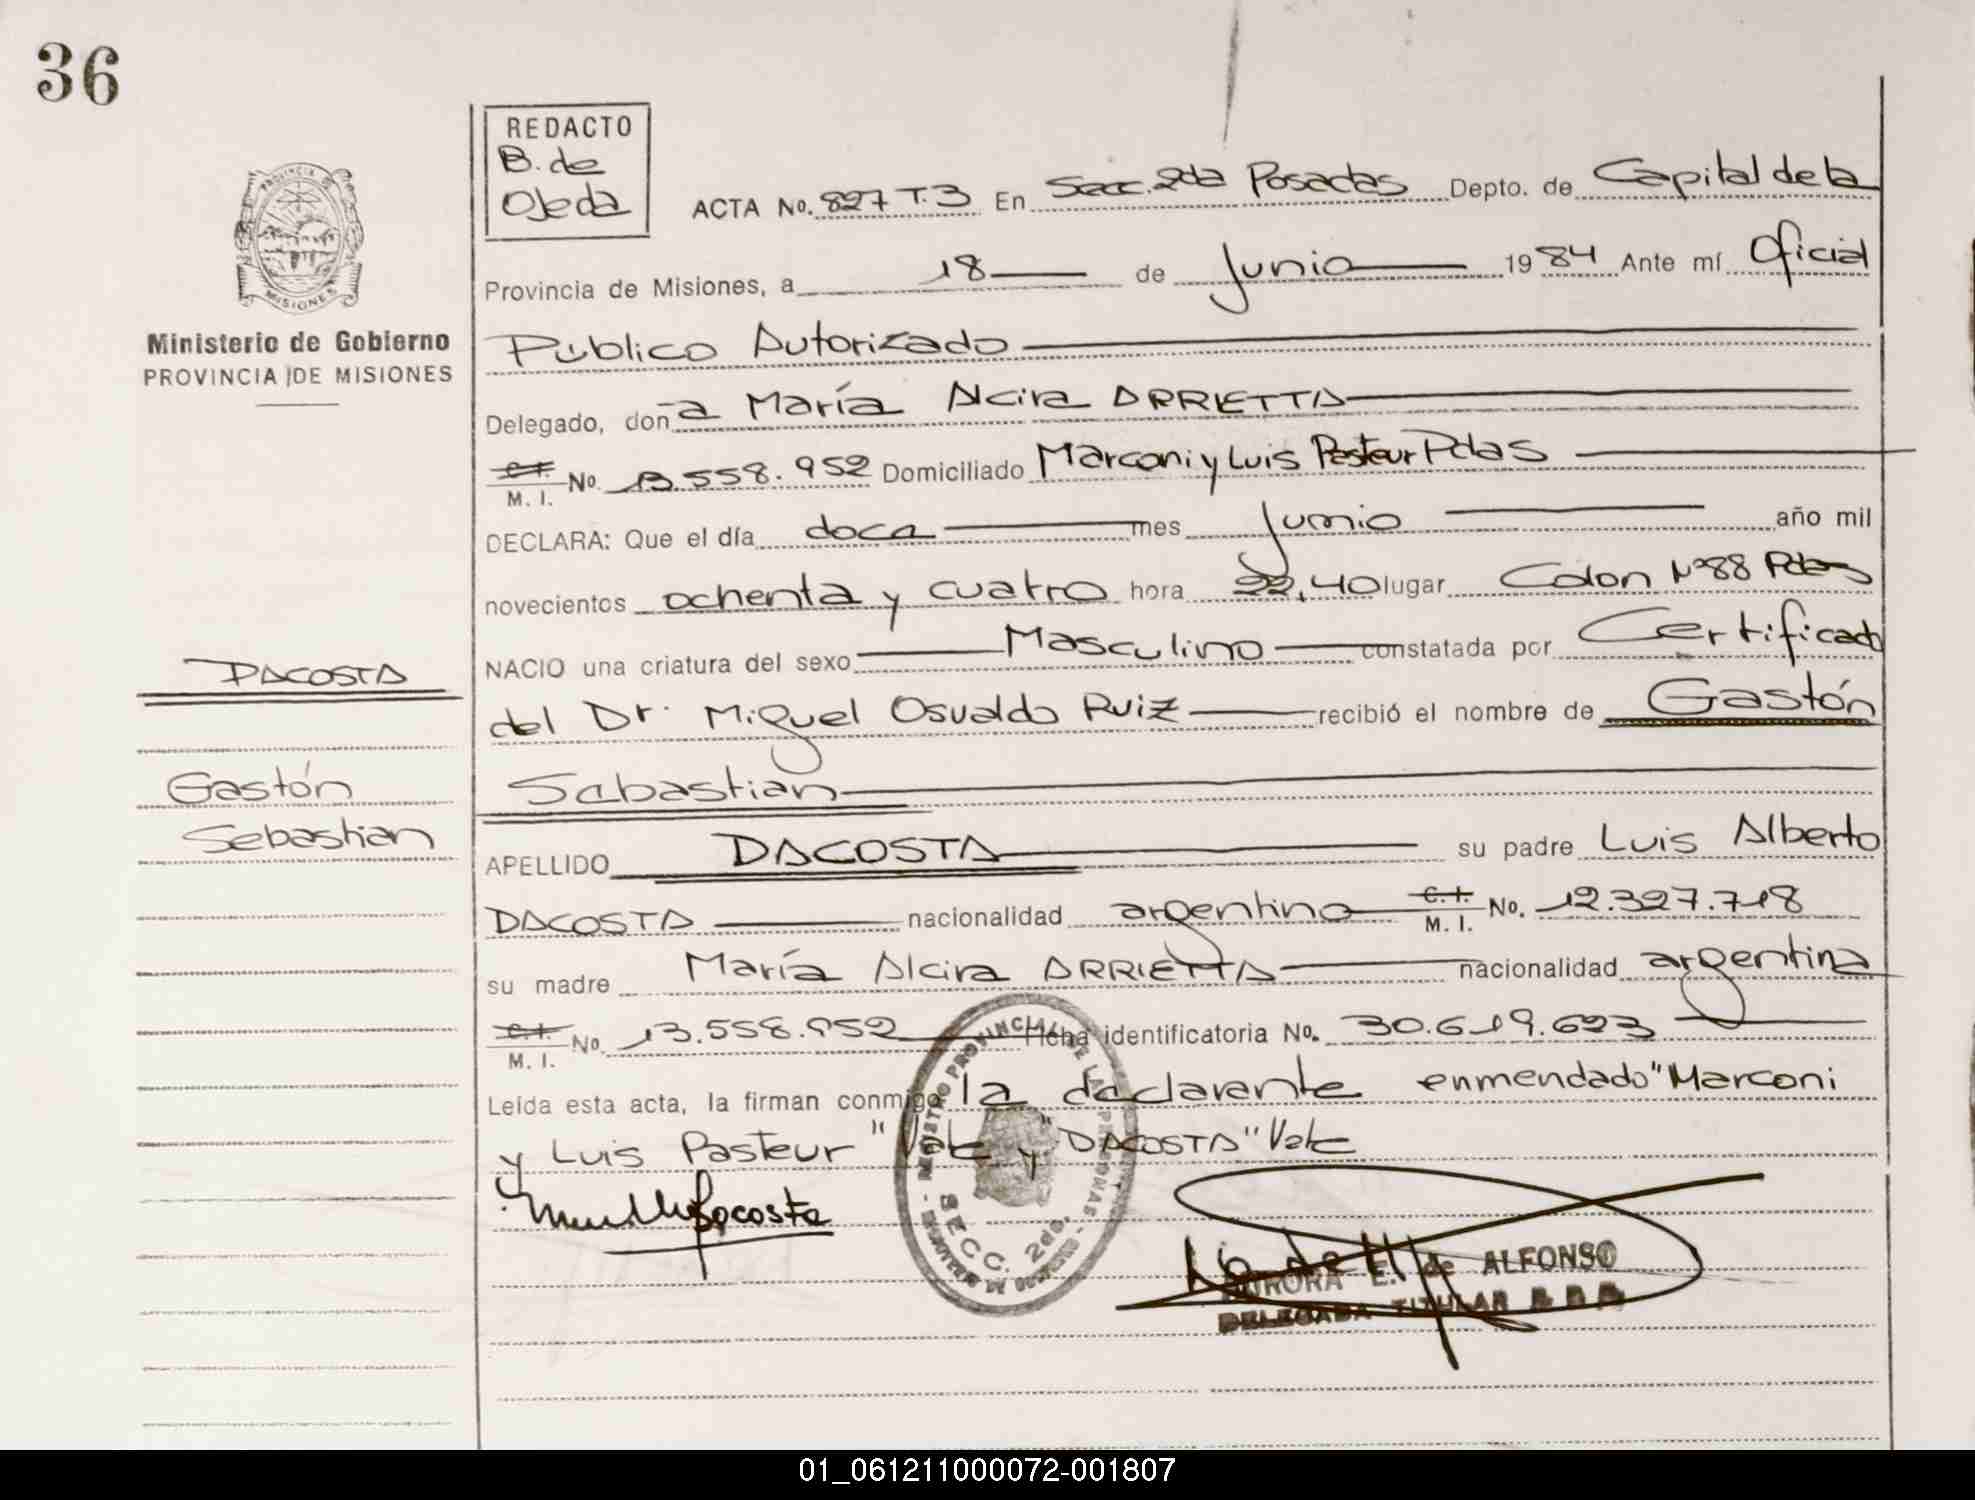 36
PROVINCIA DE
MISIONES
Ministerio de Gobierno
PROVINCIA DE MISIONES
DACOSTA
Gastón
Sebastian
REDACTO
B. de
Ojeda
ACTA No. 827 T.3 En Secc. 2da Posadas Depto. de Capital de la
Provincia de Misiones, a 18 de Junio 1984 Ante mí Oficial
Público Autorizado
Delegado, don a María Alcira ARRIETTA
C.I. M. I. No. 13.558.952 Domiciliado Marconi y Luis Pasteur Pdas
DECLARA: Que el día doce mes Junio año mil
novecientos ochenta y cuatro hora 22,40 lugar Colon Nº88 Pdas
NACIO una criatura del sexo Masculino constatada por Certificado
del Dr. Miguel Osvaldo Ruiz recibió el nombre de Gastón
Sebastian
APELLIDO DACOSTA su padre Luis Alberto
DACOSTA nacionalidad argentino C.I. M. I. No. 12.327.718
su madre María Alcira ARRIETTA nacionalidad argentina
C.I. M. I. No. 13.558.952 Ficha identificatoria No. 30.619.623
Leída esta acta, la firman conmigo la declarante enmendado "Marconi
y Luis Pasteur" Vale y "DACOSTA" Vale
REGISTRO PROVINCIAL DE LAS PERSONAS
SECC. 2da.
AURORA E. de ALFONSO
DELEGADA TITULAR
01_061211000072-001807